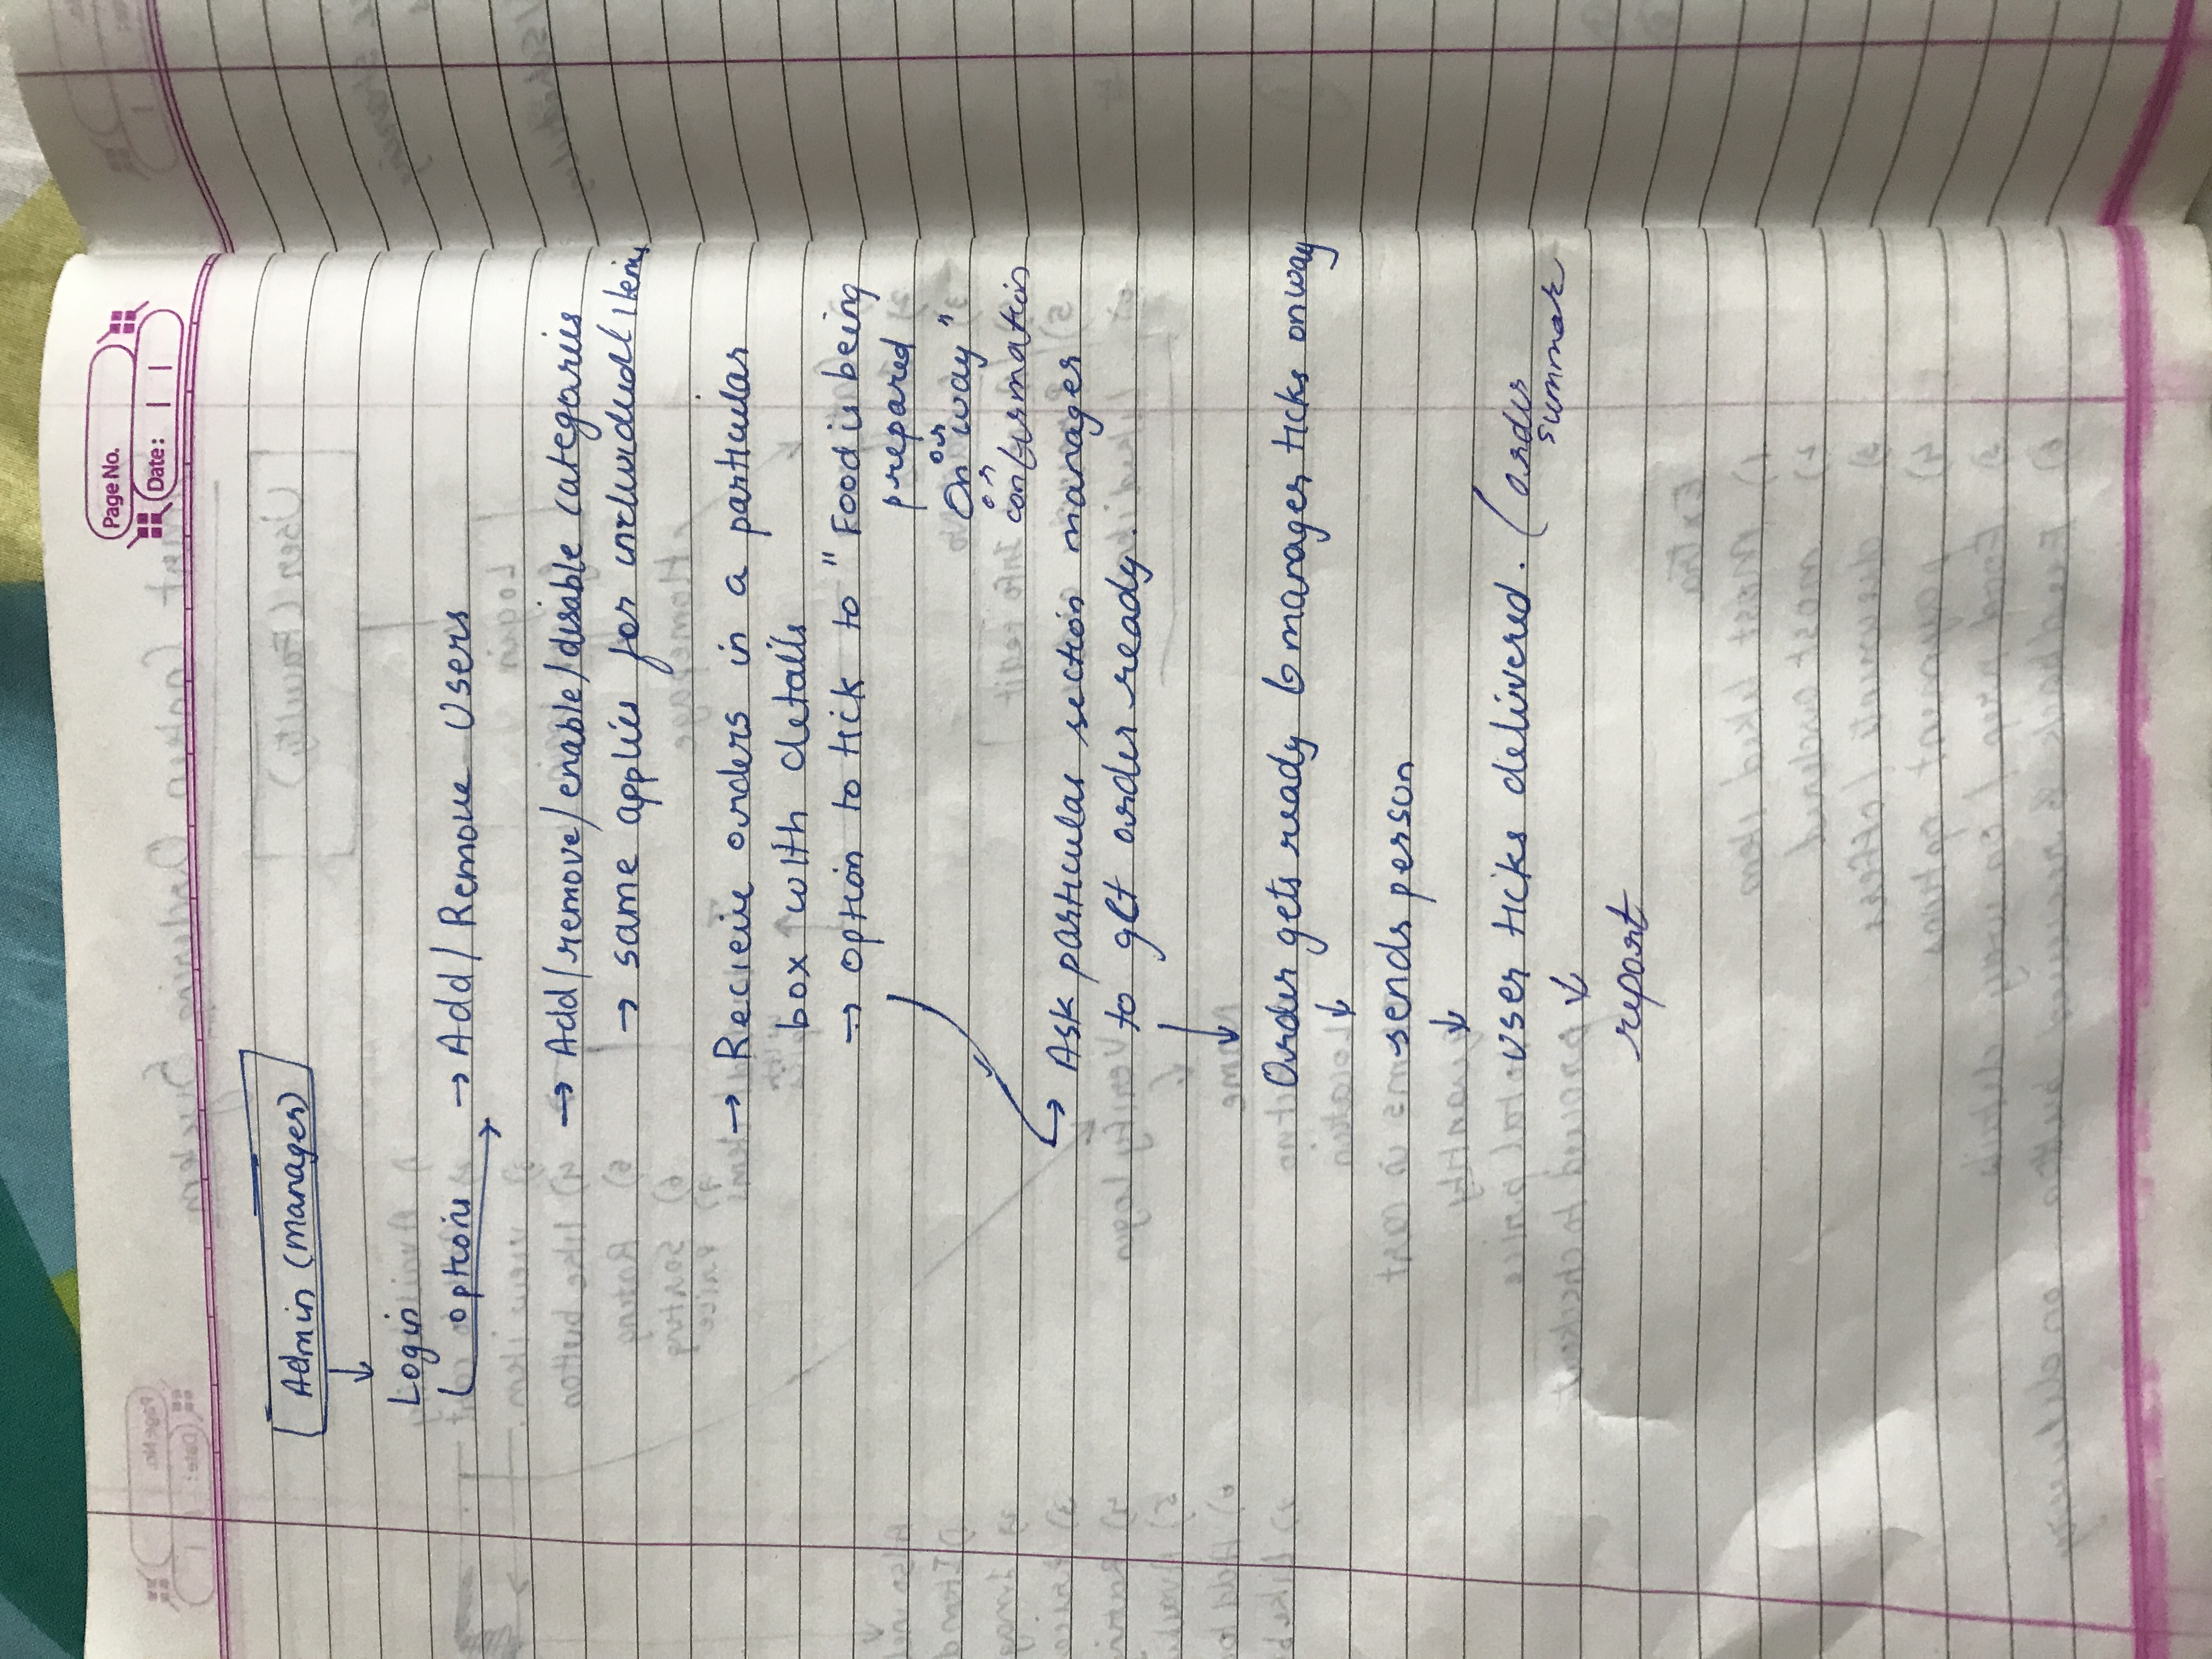 Page No.
Date: | |
Admin (manager)
Login
options → Add/Remove Users
→ Add/remove/enable/disable categories
→ same applies for individual items
→ Recieve orders in a particular
box with details
→ option to tick to "Food is being
prepared
or
On way"
or
confirmation
Ask particular section manager
to get order ready.
Order gets ready & manager ticks on way
sends person
user ticks delivered. (order
summar
report